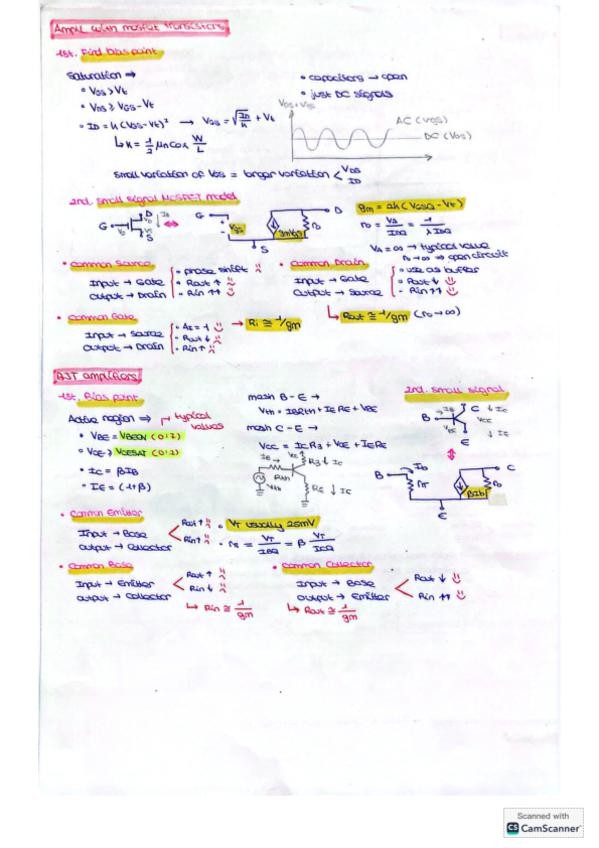 Ampl with mosfet transistors
1st. Find bias point
Saturation ⇒
• capacitors → open
• VGS > Vt
• just DC signals
• VDS ≥ VGS - Vt
• ID = k (VGS - Vt)² → VGS = √(ID/k) + Vt
↳ k = 1/2 μn Cox W/L
VDS + vgs
AC (vgs)
DC (VGS)
Small variation of VGS = larger variation < VDS ID
2nd. Small signal MOSFET model
G D S ID
G Vgs gmVgs ro D S
gm = 2k (VGSQ - Vt)
ro = VA/IDQ = 1/λIDQ
VA = ∞ → typical value
ro → ∞ ⇒ open circuit
• Common Source
• phase shift
Input → Gate
• Rout ↑
Output → Drain
• Rin ↑↑
• Common Drain
• use as buffer
Input → Gate
• Rout ↓
Output → Source
• Rin ↑↑
↳ Rout ≅ 1/gm (ro → ∞)
• Common Gate
• AI = -1
Input → Source
• Rout ↓
Output → Drain
• Rin ↑
→ Ri ≅ 1/gm
BJT amplifiers
1st. Bias point
Active region ⇒
typical values
• VBE = VBEON (0.7)
• VCE > VCESAT (0.2)
• IC = βIB
• IE = (1+β)
mesh B-E →
Vth = IBRth + IERE + VBE
mesh C-E →
VCC = ICR3 + VCE + IERE
IB Rth Vth VCC R3 ↓ IC RE ↓ IE
2nd. small signal
B IB C ↓ IC VCE ↓ IE E
B Ib rπ βIb ro C E
• Common Emitter
Input → Base
Output → Collector
Rout ↑
Rin ↑
• VT usually 25mV
• rπ = VT/IBQ = β VT/ICQ
• Common Base
Input → Emitter
Output → Collector
Rout ↑
Rin ↓
↳ Rin ≅ 1/gm
• Common Collector
Input → Base
Output → Emitter
Rout ↓
Rin ↑↑
↳ Rout ≅ 1/gm
Scanned with
CS CamScanner